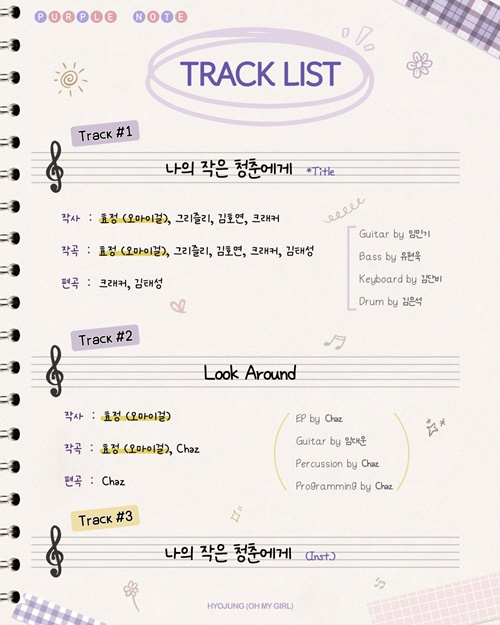 PURPLE NOTE
TRACK LIST
Track #1
나의 작은 청춘에게 *Title
작사 : 효정 (오마이걸), 그리즐리, 김호연, 크래커
작곡 : 효정 (오마이걸), 그리즐리, 김호연, 크래커, 김태성
편곡 : 크래커, 김태성
Guitar by 임민기
Bass by 유현욱
Keyboard by 김단비
Drum by 김은석
Track #2
Look Around
작사 : 효정 (오마이걸)
작곡 : 효정 (오마이걸), Chaz
편곡 : Chaz
EP by Chaz
Guitar by 임태운
Percussion by Chaz
Programming by Chaz
Track #3
나의 작은 청춘에게 (Inst.)
HYOJUNG (OH MY GIRL)